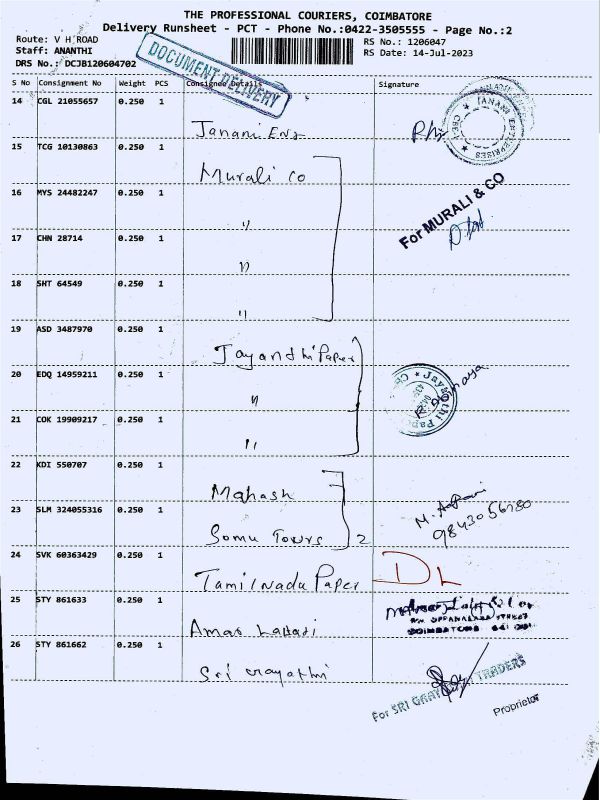 THE PROFESSIONAL COURIERS, COIMBATORE
Delivery Runsheet - PCT - Phone No.:0422-3505555 - Page No.:2
Route: V H ROAD
Staff: ANANTHI
DRS No.: DCJB120604702
RS No.: 1206047
RS Date: 14-Jul-2023
DOCUMENT DELIVERY
S No Consignment No Weight PCS Consignee Details Signature
14 CGL 21055657 0.250 1
Janani Ent
JANANI ENTERPRISES ★ CBE
15 TCG 10130863 0.250 1
Murali Co
16 MYS 24482247 0.250 1
"
For MURALI & CO
17 CHN 28714 0.250 1
"
18 SHT 64549 0.250 1
"
19 ASD 3487970 0.250 1
Jayandhi Paper
20 EDQ 14959211 0.250 1
"
21 COK 19909217 0.250 1
"
22 KDI 550707 0.250 1
Mahash
23 SLM 324055316 0.250 1
Somu Towrs 2
24 SVK 60363429 0.250 1
Tamilnadu Paper
DL
25 STY 861633 0.250 1
Amar
26 STY 861662 0.250 1
Sri
For SRI TRADERS
Proprietor